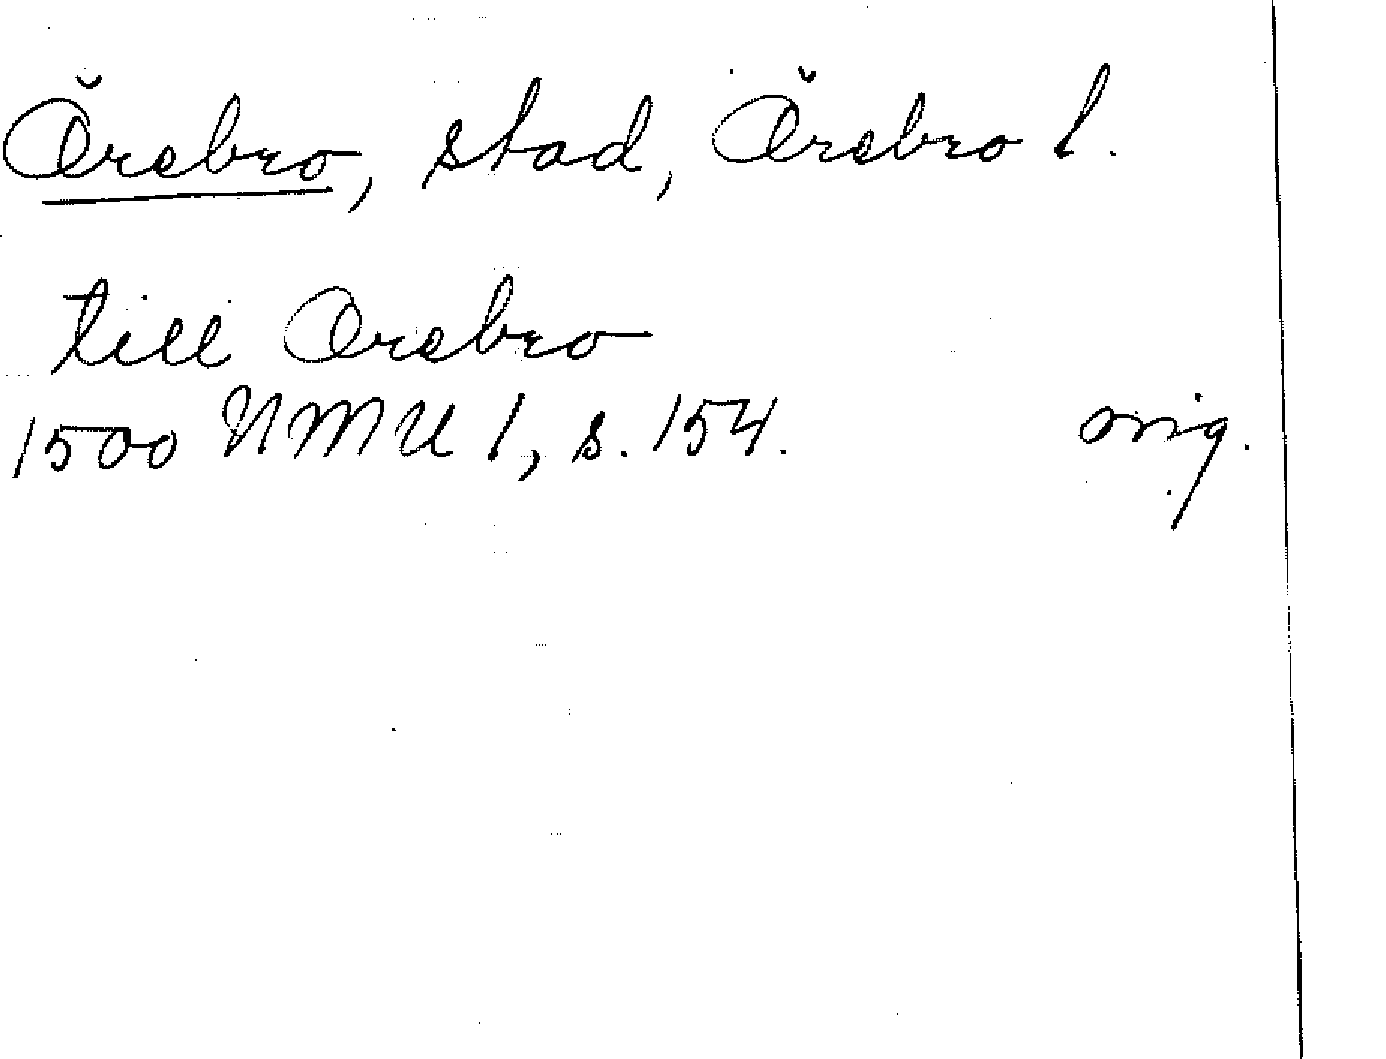 Örebro, stad, Örebro l.
till Orebro
1500 NMU 1, s. 154. orig.